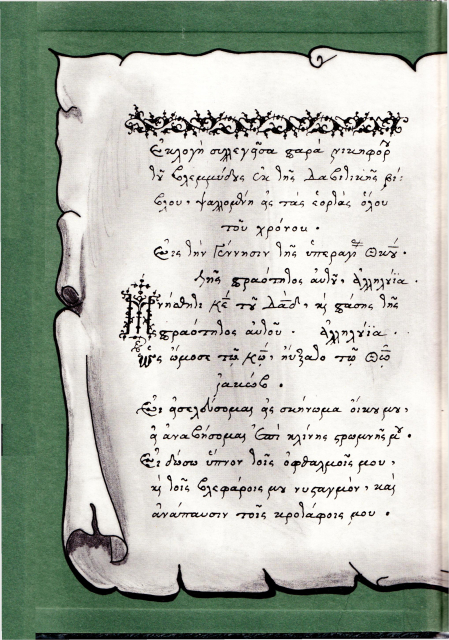 Ἐκλογὴ συλλεγεῖσα παρὰ Νικηφόρ
τοῦ Βλεμμύδους ἐκ τῆς Δαβιτικῆς βί-
βλου, ψαλλομένη εἰς τὰς ἑορτὰς ὅλου
τοῦ χρόνου.
Εἰς τὴν Γέννησιν τῆς ὑπεραγ Θκου.
τῆς πραότητος αὐτοῦ, Ἀλληλούϊα.
Μνήσθητι Κε τοῦ Δαδ, καὶ πάσης τῆς
πραότητος αὐτοῦ. Ἀλληλούϊα.
Ὡς ὤμοσε τῷ Κω, ηὔξατο τῷ Θῶ
Ἰακώβ.
Εἰ εἰσελεύσομαι εἰς σκήνωμα οἴκου μου,
εἰ ἀναβήσομαι ἐπὶ κλίνης στρωμνῆς μου.
Εἰ δώσω ὕπνον τοῖς ὀφθαλμοῖς μου,
καὶ τοῖς βλεφάροις μου νυσταγμόν, καὶ
ἀνάπαυσιν τοῖς κροτάφοις μου.